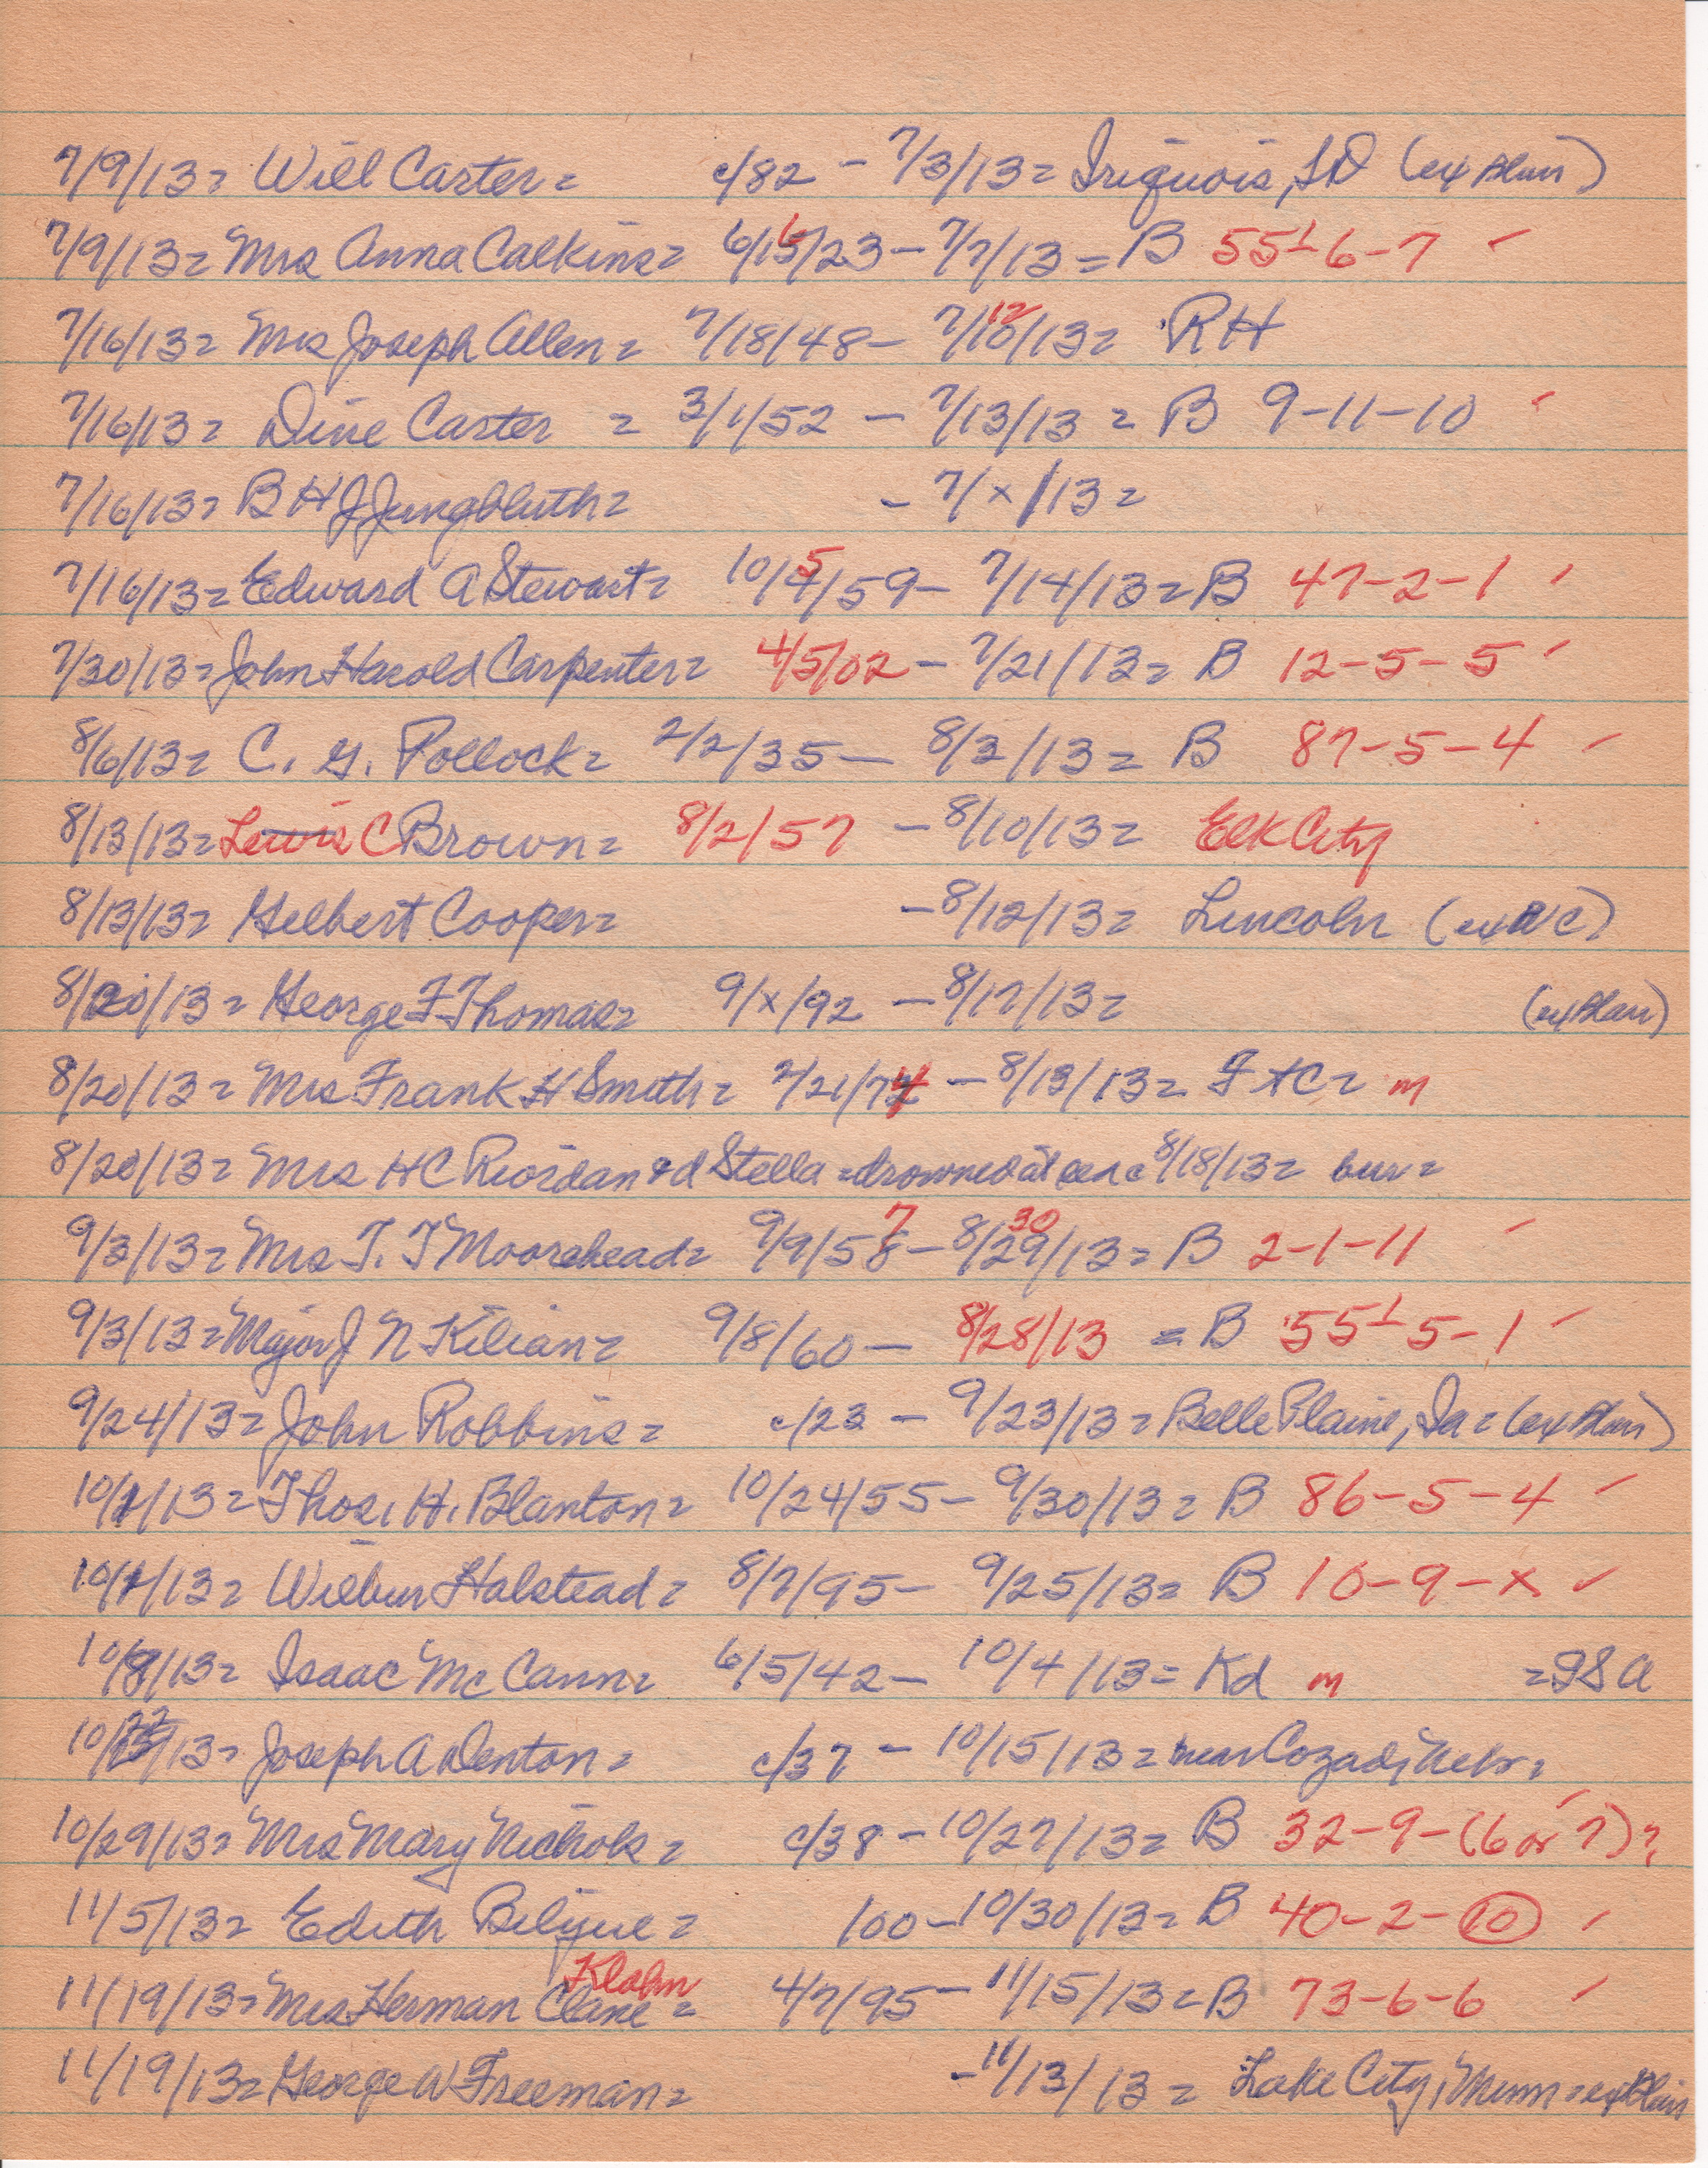 7/9/13= Will Carter= c/82 - 7/3/13= Iriquois, SD (ex Blair)
7/9/13= Mrs Anna Calkins= 6/16/23 - 7/7/13 = B 55½-6-7 ✓
7/16/13= Mrs Joseph Allen= 7/18/48 - 7/12/13= RH
7/16/13= Dine Carter = 3/1/52 - 7/13/13 = B 9-11-10 ✓
7/16/13= B H J Jungbluth= - 7/x/13=
7/16/13= Edward A Stewart= 10/5/59 - 7/14/13= B 47-2-1 ✓
7/30/13= John Harold Carpenter= 4/5/02 - 7/21/13= B 12-5-5 ✓
8/6/13= C. G. Pollock= 2/2/35 - 8/3/13= B 87-5-4 ✓
8/13/13= Lewis C Brown= 8/2/57 - 8/10/13= Elk City
8/13/13= Gilbert Cooper= - 8/12/13= Lincoln (ex WC)
8/20/13= George F Thomas= 9/x/92 - 8/17/13= (ex Blair)
8/20/13= Mrs Frank H Smith= 2/21/74 - 8/13/13= Ft C= m
8/20/13= Mrs H C Riordan & d Stella = drowned at sea c 8/18/13= bur=
9/3/13= Mrs T. T Moorehead= 9/9/57 - 8/30/13= B 2-1-11 ✓
9/3/13= Major J N Kilian= 9/8/60 - 8/28/13 = B 55½-5-1 ✓
9/24/13= John Robbins= c/23 - 9/23/13= Belle Plaine, Ia= (ex Blair)
10/1/13= Thos. H. Blanton= 10/24/55 - 9/30/13= B 86-5-4 ✓
10/1/13= Wilbur Halstead= 8/7/95 - 9/25/13= B 10-9-x ✓
10/8/13= Isaac McCann= 6/5/42 - 10/4/13= Kd m =98 A
10/22/13= Joseph A Denton= c/37 - 10/15/13= near Cozad, Nebr=
10/29/13= Mrs Mary Nichols= c/38 - 10/27/13= B 32-9-(6 or 7)? ✓
11/5/13= Edith Bilyue= 100 - 10/30/13= B 40-2-10 ✓
11/19/13= Mrs Herman Clane Klahn= 4/7/95 - 11/15/13= B 73-6-6 ✓
11/19/13= George W Freeman= - 11/13/13= Lake City, Minn= ex Blair